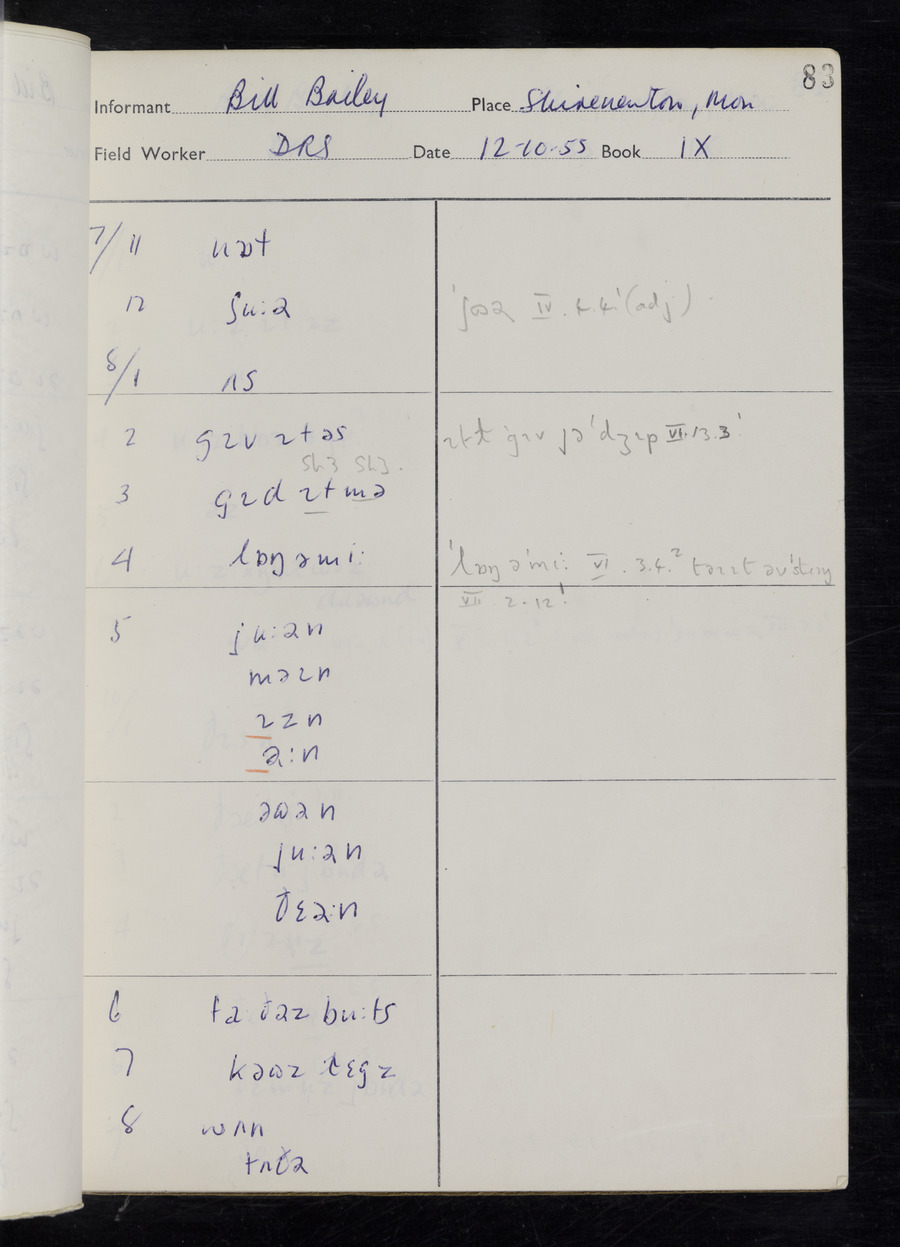 83
Informant Bill Bailey Place Shirenewton, Mon
Field Worker DRS Date 12-10-55 Book IX
7/11 nɒt
12 ʃuːə 'ʃoə IV.4.4.'(adj)
8/1 ʌs
2 gɪv ɪt əs ɪt gɪv jə VI.13.3
sh3 sh3.
3 gɪd ɪt mə
4 lɒŋ ə miː 'lɒŋ ə'miː VI.3.4.²
VII.2.12!
5 juːən
məɪn
ɪzn
əːn
əʊən
juːən
ðɛəːn
6 fɑːðəz buːts
7 kəʊz lɛgz
8 wʌn
tʌðə